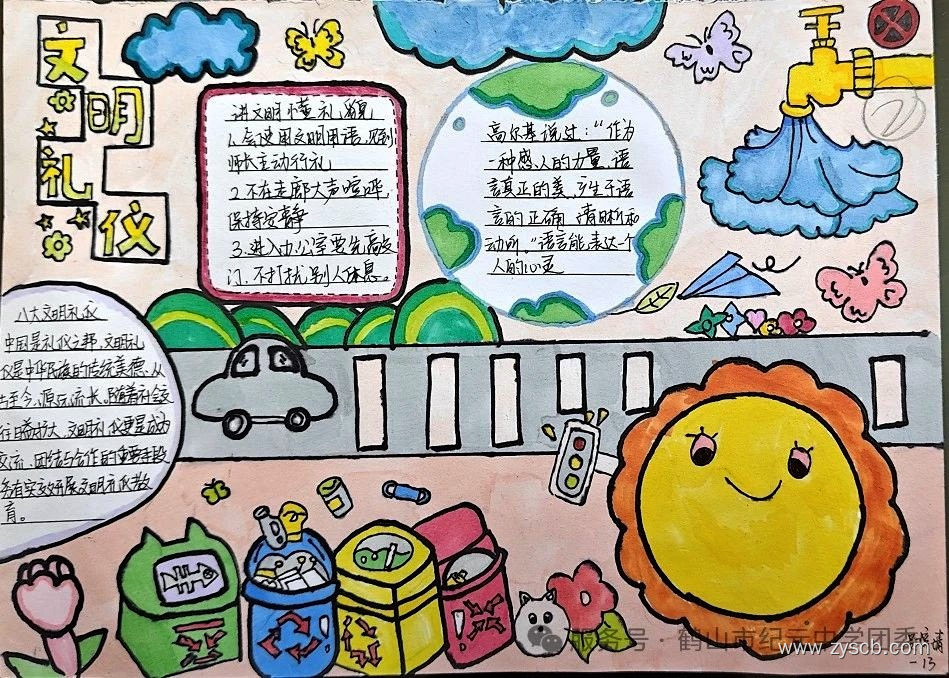 文明
礼仪
讲文明懂礼貌
1.会使用文明用语,见到
师长主动行礼
2.不在走廊大声喧哗,
保持安静
3.进入办公室要先高
门.不打扰别人休息。
高尔基说过:“作为
一种感人的力量,语
言真正的美,产生于语
言的正确、清晰和
动听”语言能表达一个
人的心灵
八大文明礼仪
中国是礼仪之邦,文明礼
仪是中华民族的传统美德,从
古至今,源远流长,随着社会交
往日益扩大,文明礼仪更是成为
交流、团结与合作的重要手段
务有实效开展文明礼仪教
育。
公众号·鹤山市纪元中学团委
www.zyscb.com
-13